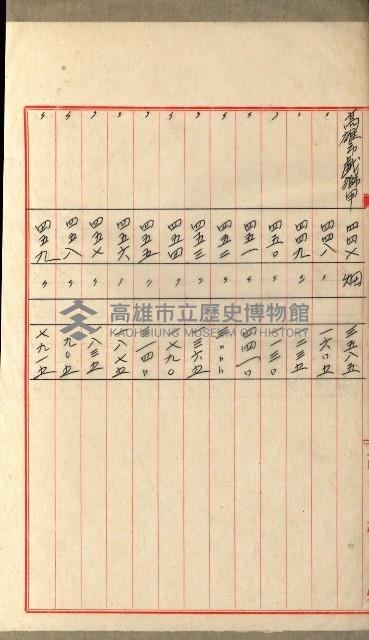 高雄市戲獅甲 四四七 畑 三五八五
〃 四四八 〃 一六〇五
〃 四四九 〃 二三五
〃 四五〇 〃 一三〇
〃 四五一 〃 四四一〇
〃 四五二 〃
〃 四五三 〃 三六五
〃 四五四 〃 七九〇
〃 四五五 〃 三一四〇
〃 四五六 〃 八七五
〃 四五七 〃 八三五
〃 四五八 〃 九〇五
〃 四五九 〃 七九一五
高雄市立歷史博物館
KAOHSIUNG MUSEUM OF HISTORY